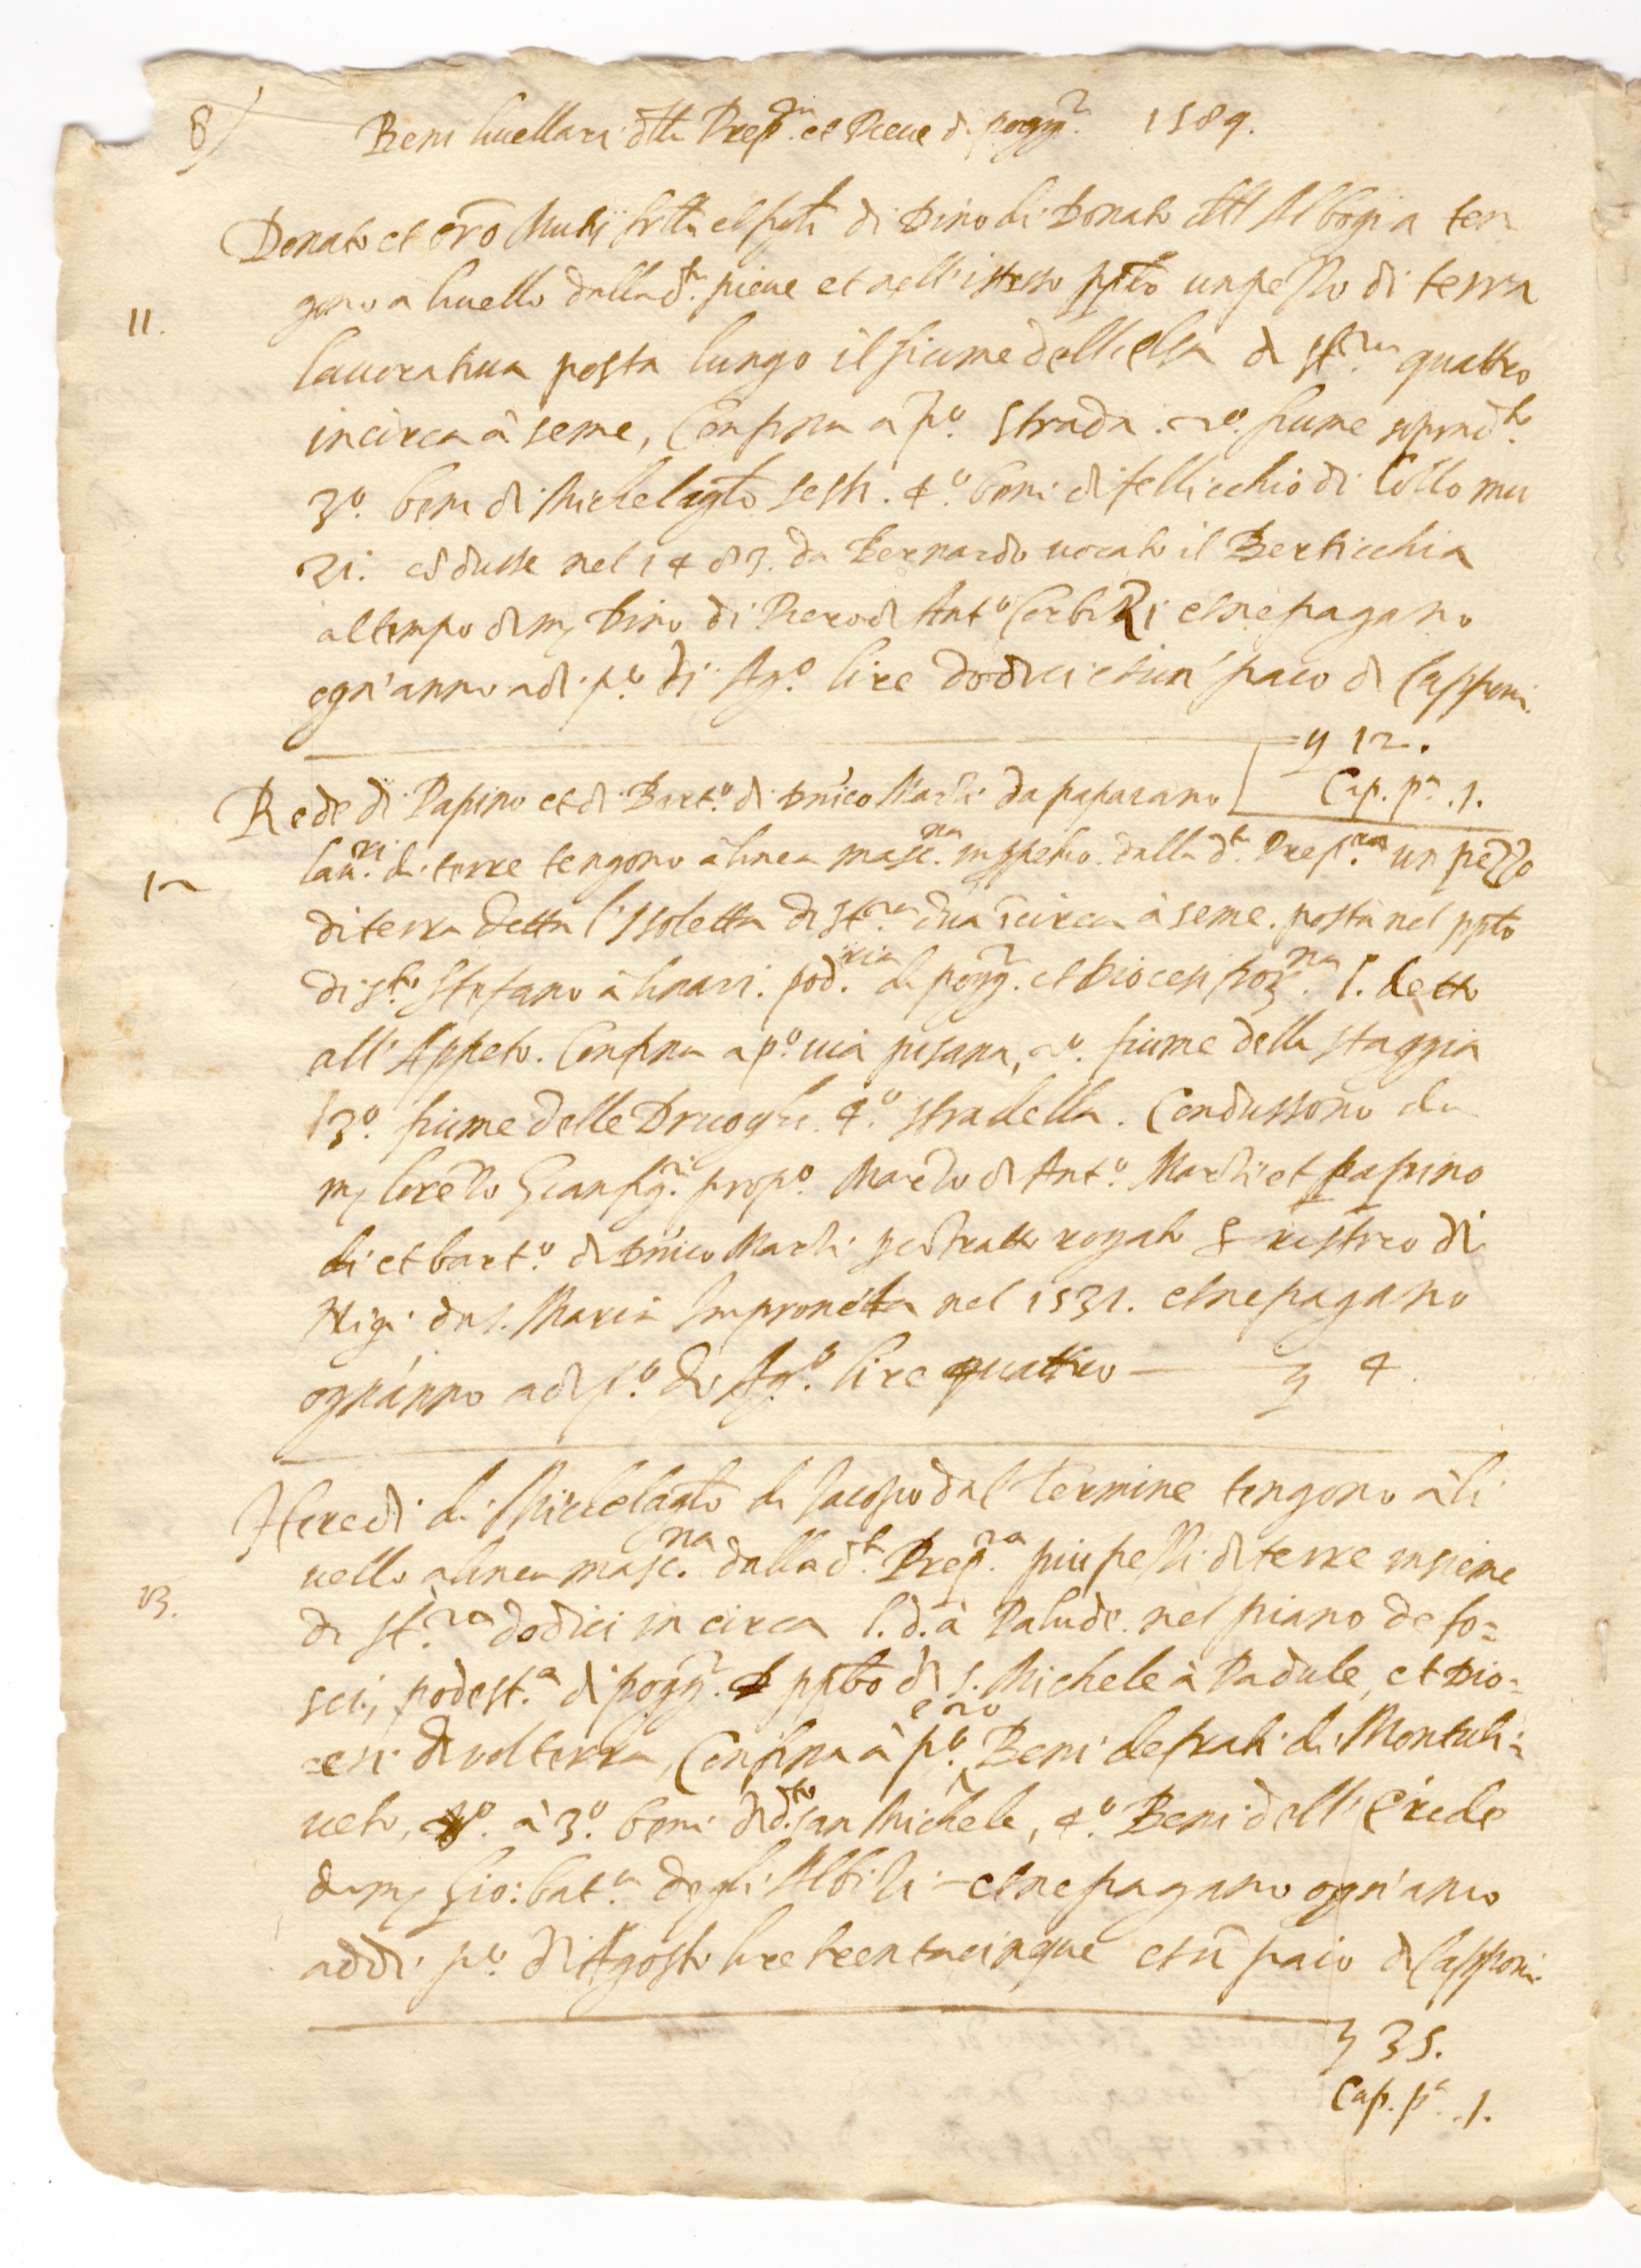 8) Beni livellari dlla Prep.ra et Pieve di pogg.i 1589.
Donato et di Dino di Donato ten
11. gono a livello dalla d.a pieve et nell'istesso pplo un pezzo di terra
lavorativa posta lungo il fiume dell'elsa di st.ra quattro
incirca à seme, Confina a p.o strada. 2.o fiume soprad.to
3.o beni di Michelagl.o sesti. 4.o beni di fellicchio di Collo mu
zi. cōdusse nel 1483. da Bernardo vocato il Berticchia
al tempo di m. Dino di Piero di Ant.o et ne pagano
ogn'anno adi p.o di Ag.o lire dodici et un' paio di Capponi.
12.
Cap. p.a .1.
Rede di Papino et di Bart.o di Dn̄ico Marti da papaiano
12 lav.ri di terre tengono à linea masc.na dalla d.a Prep.ra un pezzo
di terra detta l'Isoletta di st.ra dua īcirca à seme. posta nel pplo
di S.to Stefano à linari. pod.ria di pogg. et Diocesi l. detto
all'Appeto. Confina a p.o via pisana, 2.o fiume della staggia
3.o fiume delle Drove. 4.o stradella. Condussono da
m. Lorēzo Gianfig. prop.o di Ant.o Marti et papino
di et bart.o di Dn̄ico Marti p cōtratto rogato
da S. Maria Impruneta nel 1531. et ne pagano
ogn'anno adi p.o di Ag.o lire quattro — 4.
Heredi di Michelagl.o di Jacopo dal Termine tengono à li
13. vello a linea masc.na dalla d.a Prep.ra piu pezzi di terre insieme
di st.ra dodici in circa l. d. à Palude. nel piano de fo=
sci, podest.a di pogg. pplo di S. Michele à Padule, et Dio=
=cesi di volterra, Confina à p.o e 2o Beni de frati di Montuli=
veto, à 3.o beni di d.to san Michele, 4.o Beni dell'Erede
di m. Gio: bat.a degli Albizi et ne pagano ogn'anno
addi p.o di Agosto lire trentacinque et ū paio di Capponi.
35.
Cap. p.a .1.